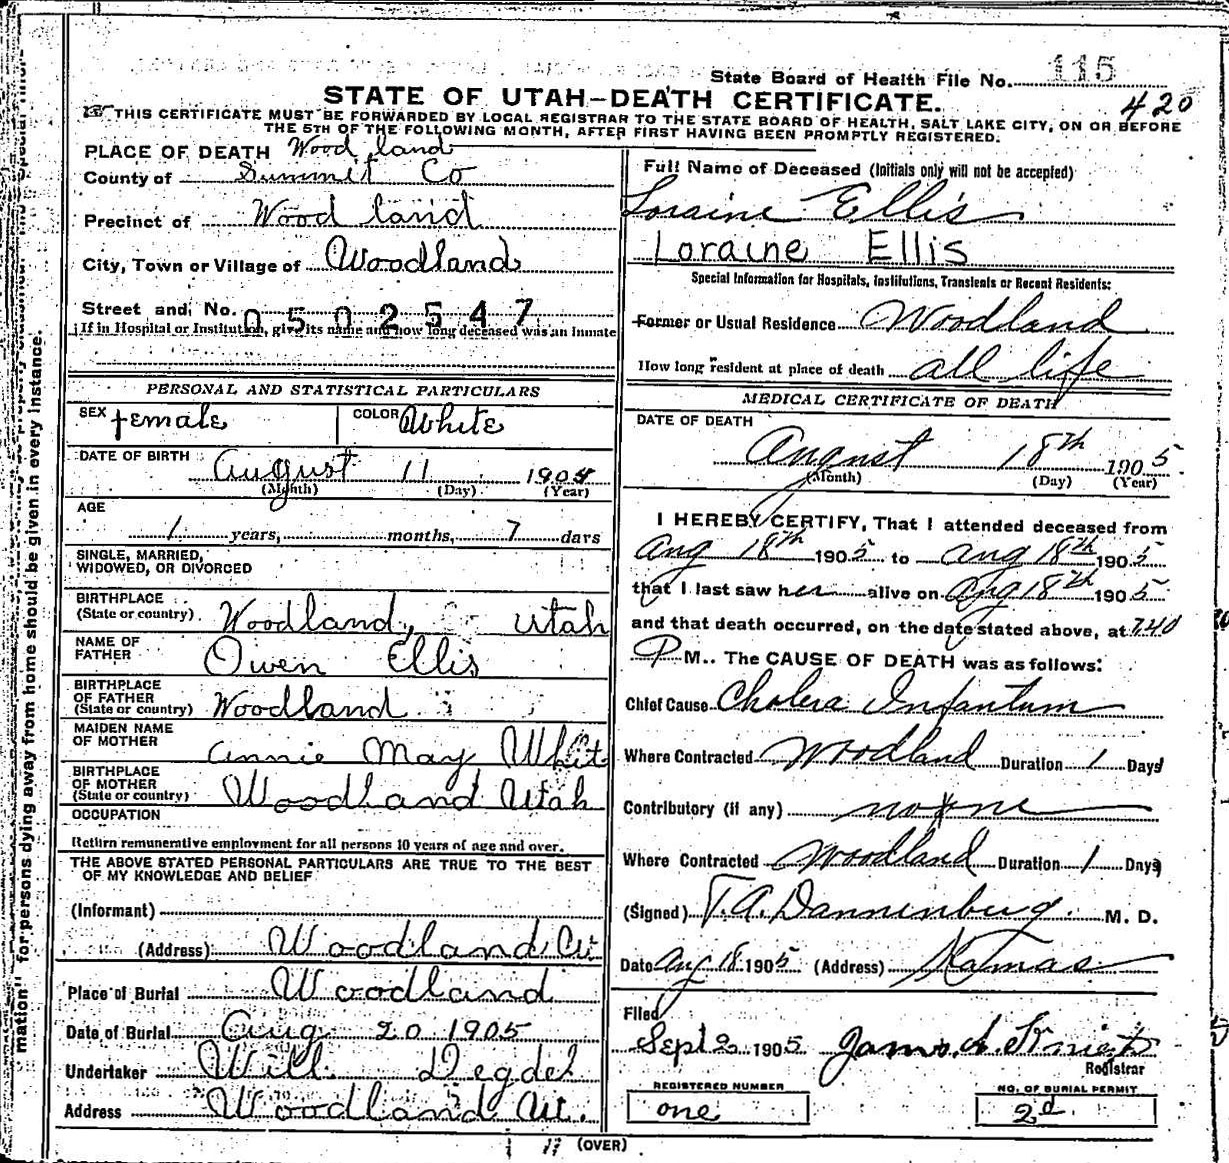 State Board of Health File No. 115
STATE OF UTAH—DEATH CERTIFICATE.
420
THIS CERTIFICATE MUST BE FORWARDED BY LOCAL REGISTRAR TO THE STATE BOARD OF HEALTH, SALT LAKE CITY, ON OR BEFORE
THE 5TH OF THE FOLLOWING MONTH, AFTER FIRST HAVING BEEN PROMPTLY REGISTERED.
PLACE OF DEATH Wood land
County of Summit Co
Precinct of Wood land
City, Town or Village of Woodland
Street and No. 0502547
If in Hospital or Institution, give its name and how long deceased was an inmate
PERSONAL AND STATISTICAL PARTICULARS
SEX female COLOR White
DATE OF BIRTH August 11 1904
(Month) (Day) (Year)
AGE
1 years, months, 7 days
SINGLE, MARRIED,
WIDOWED, OR DIVORCED
BIRTHPLACE
(State or country) Woodland, Utah
NAME OF
FATHER Owen Ellis
BIRTHPLACE
OF FATHER
(State or country) Woodland
MAIDEN NAME
OF MOTHER Annie May Whit
BIRTHPLACE
OF MOTHER
(State or country) Woodland Utah
OCCUPATION
Return remunerative employment for all persons 10 years of age and over.
THE ABOVE STATED PERSONAL PARTICULARS ARE TRUE TO THE BEST
OF MY KNOWLEDGE AND BELIEF
(Informant)
(Address) Woodland
Place of Burial Woodland
Date of Burial Aug 20 1905
Undertaker Will
Address Woodland Ut.
Full Name of Deceased (Initials only will not be accepted)
Loraine Ellis
Loraine Ellis
Special Information for Hospitals, Institutions, Transients or Recent Residents:
Former or Usual Residence Woodland
How long resident at place of death all life
MEDICAL CERTIFICATE OF DEATH
DATE OF DEATH
August 18th 1905.
(Month) (Day) (Year)
I HEREBY CERTIFY, That I attended deceased from
Aug 18th 1905 to Aug 18th 1905
that I last saw her alive on Aug 18th 1905
and that death occurred, on the date stated above, at 7.40
P M.. The CAUSE OF DEATH was as follows:
Chief Cause Cholera Infantum
Where Contracted Woodland Duration 1 Days
Contributory (if any) none
Where Contracted Woodland Duration 1 Days
(Signed) T.A. Dannenburg. M. D.
Date Aug 18 1905 (Address) Kamas
Filed
Sept 2 1905
Registrar
REGISTERED NUMBER
one
NO. OF BURIAL PERMIT
2d
(OVER)
mation" for persons dying away from home should be given in every instance.